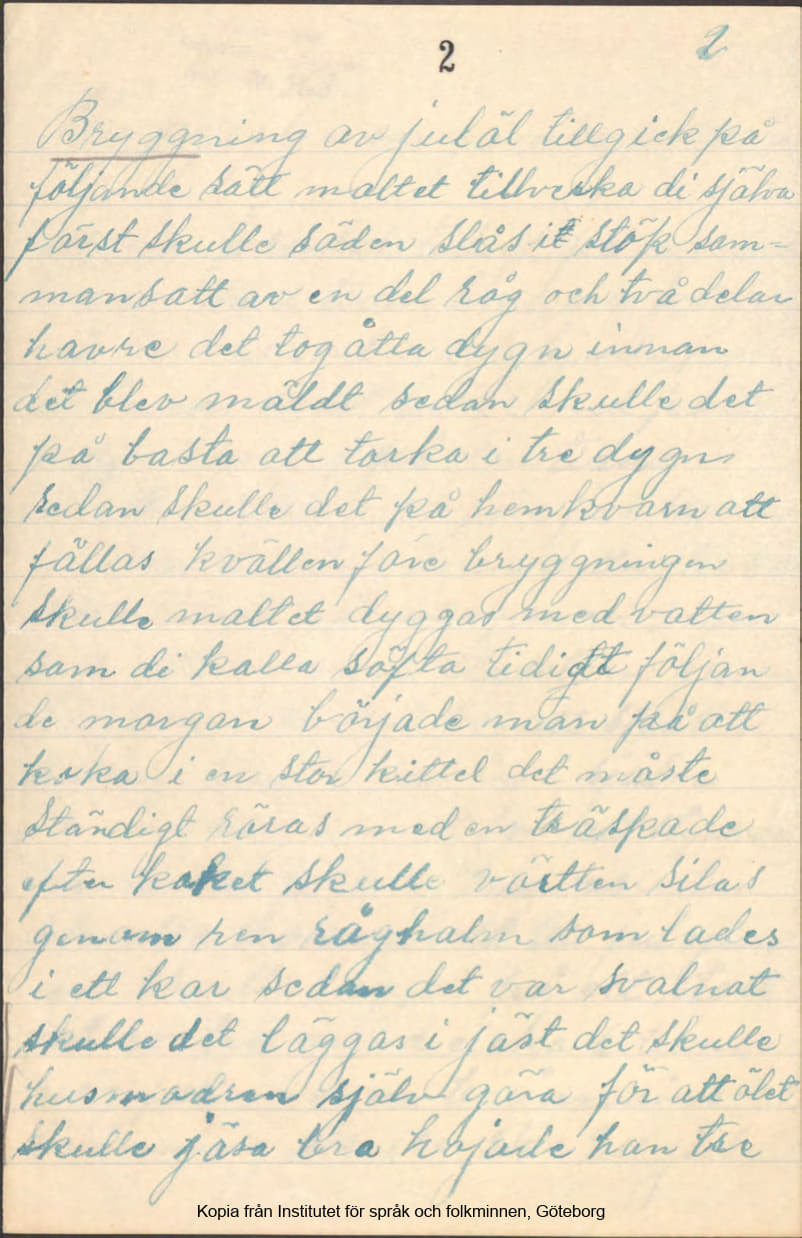 2 2
Bryggning av julöl tillgick på
följande sätt maltet tillverka di själva
först skulle säden slås i stöp sam=
mansatt av en del råg och två delar
havre det tog åtta dygn innan
det blev mäldt sedan skulle det
på basta att torka i tre dygn
sedan skulle det på hemkvarn att
fällas kvällen före bryggningen
skulle maltet dyggas med vatten
som di kalla söfta tidigt följan
de morgon började man på att
koka i en stor kittel det måste
ständigt röras med en träspade
efter koket skulle vörtten silas
genom ren råghalm som lades
i ett kar sedan det var svalnat
skulle det läggas i jäst det skulle
husmodren själv göra för att ölet
skulle jäsa bra hojade hon tre
Kopia från Institutet för språk och folkminnen, Göteborg